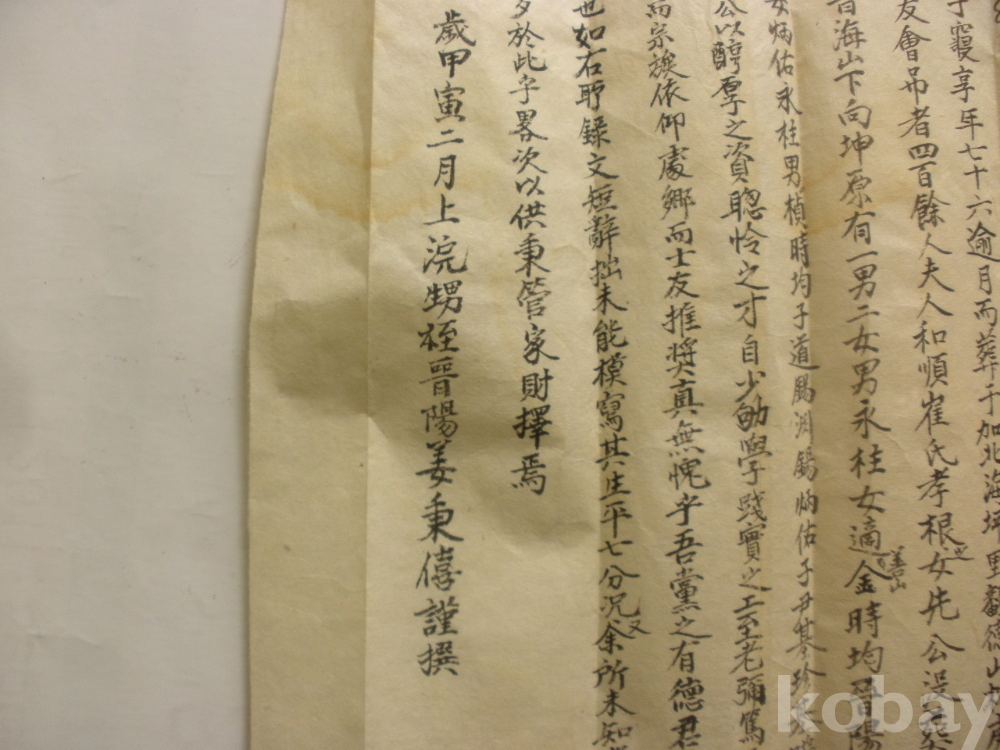 寢享年七十六逾月而葬于加北海坪里
友會吊者四百餘人夫人和順崔氏孝根女先公沒葬
海山下向坤原有一男二女男永柱女適善山金時均晋陽
女炳佑永柱男楨時均子道錫淵錫炳佑子尹基
公以醇厚之資聰怜之才自少劬學踐實之工至老彌篤
而宗族依仰處鄉而士友推奬真無愧乎吾黨之有德君
也如右所録文短辭拙未能模寫其生平七分况又余所未知
於此乎畧次以供秉管家財擇焉
歲甲寅二月上浣甥姪晋陽姜秉僖謹撰
kobay